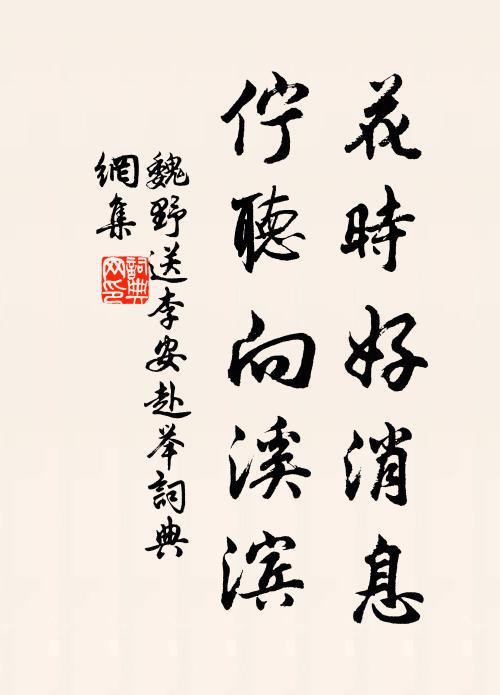 花時好消息
佇聽向溪滨
魏野送李安赴举詞典
網集
詞典
网印